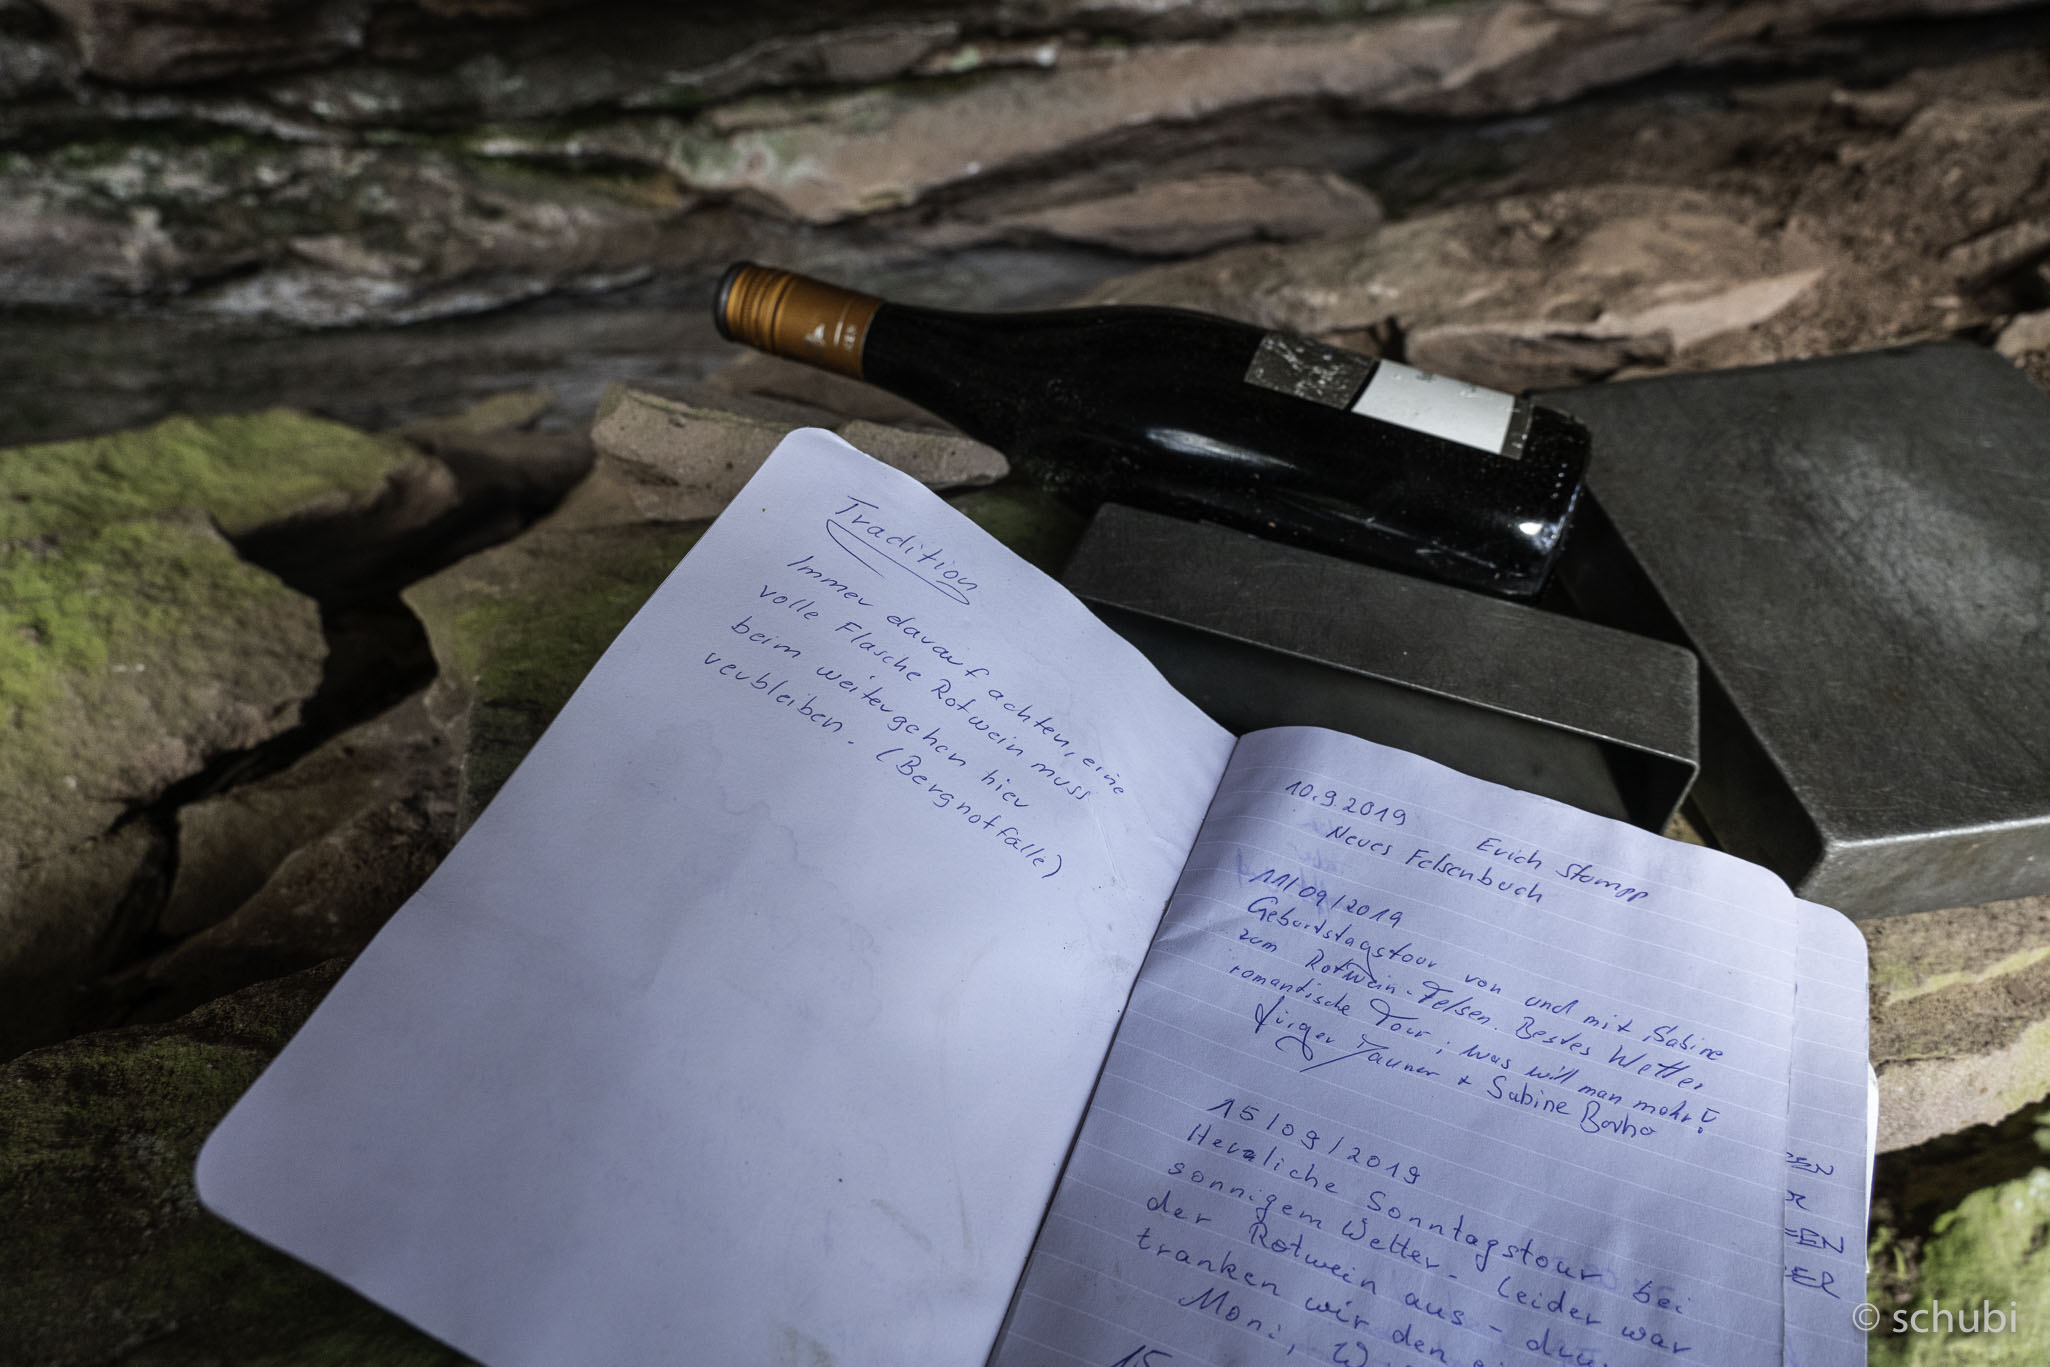 Tradition
Immer darauf achten, eine
volle Flasche Rotwein muss
beim weitergehen hier
verbleiben. (Bergnotfälle)
10.9.2019 Erich Stampp
Neues Felsenbuch
11/09/2019
Geburtstagstour von und mit Sabine
zum Rotwein-Felsen. Bestes Wetter
romantische Tour; was will man mehr!
Jürger Tauner + Sabine Borho
15/09/2019
Herrliche Sonntagstour bei
sonnigem Wetter - leider war
der Rotwein aus -
tranken wir den
Moni,
15
© schubi